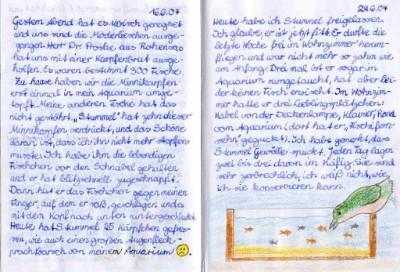 16.6.04
Gestern Abend hat es tierisch geregnet
und uns sind die Moderlieschen ausge-
gangen. Herr Dr. Proske aus Rohenas
hat uns mit einer Kampferbrut ausge-
holfen. Es waren bestimmt 300 Fische.
Zu Hause haben wir die Minikampfer
erst einmal in mein Aquarium umge-
topft. Meine anderen Fische hat das
nicht gestört. „Stummel" hat zehn dieser
Minnikampfer verdrückt, und das Schöne
daran ist, dass ich ihn nicht mehr stopfen
musste. Ich habe ihm die lebendigen
Fischchen vor den Schnabel gehalten
und er hat blitzschnell zugeschnappt.
Dann haut er das Fischchen gegen meinen
Finger, auf dem er saß, geschlagen und
mit dem Kopf nach unten runtergeschluckt.
Heute hat Stummel 25 Kärpfchen gefres-
sen, wie auch einen großen Augenfleck-
prachtbarsch von meinem Aquarium
24.6.04
Heute habe ich Stummel freigelassen.
Ich glaube, er ist jetzt fit. Er durfte die
letzte Woche frei im Wohnzimmer herum-
fliegen und war nicht mehr so zahm wie
am Anfang. Drei mal ist er sogar im
Aquarium rumgetaucht, hat aber lei-
der keinen Fisch erwischt. Im Wohnzim-
mer hatte er drei Lieblingsplätzchen:
Kabel von der Deckenlampe, Klavier, Rand
vom Aquarium (dort hat er „Fischfern-
sehn" geguckt). Ich habe gemerkt, das
Stummel Gewölle spuckt, jeden Tag lagen
zwei bis drei davon im Käfig. Sie sind
sehr zerbrechlich, ich weiß nicht, wie
ich sie konservieren kann.